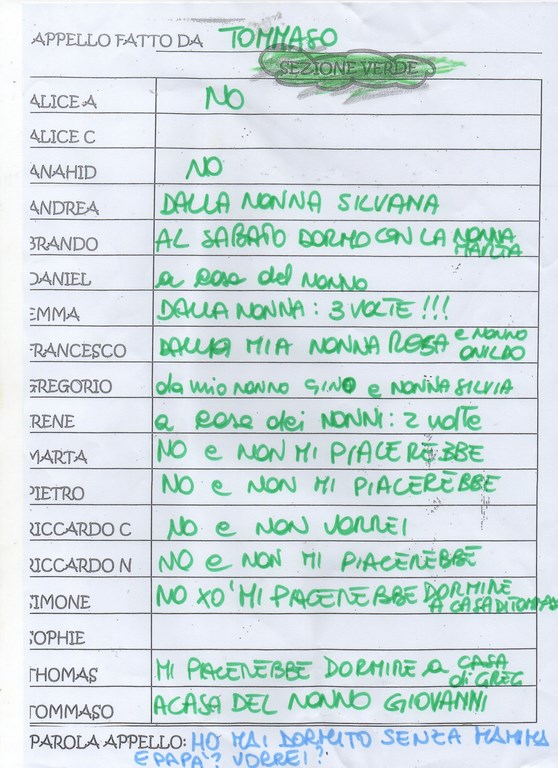 APPELLO FATTO DA TOMMASO
SEZIONE VERDE
ALICE A NO
ALICE C
ANAHID NO
ANDREA DALLA NONNA SILVANA
BRANDO AL SABATO DORMO CON LA NONNA
MARTA
DANIEL a casa del NONNO
EMMA DALLA NONNA: 3 VOLTE !!!
FRANCESCO DALLA MIA NONNA ROSA e NONNO
ONILDO
GREGORIO da mio NONNO GINO e NONNA SILVIA
IRENE a casa dei NONNI: 2 volte
MARTA NO e NON MI PIACEREBBE
PIETRO NO e NON MI PIACEREBBE
RICCARDO C NO e NON VORREI
RICCARDO N NO e NON MI PIACEREBBE
SIMONE NO XO' MI PIACEREBBE DORMIRE
A CASA DI TOMMASO
SOPHIE
THOMAS MI PIACEREBBE DORMIRE a CASA
di GREG
TOMMASO A CASA DEL NONNO GIOVANNI
PAROLA APPELLO: HO MAI DORMITO SENZA MAMMA
E PAPA'? VORREI?